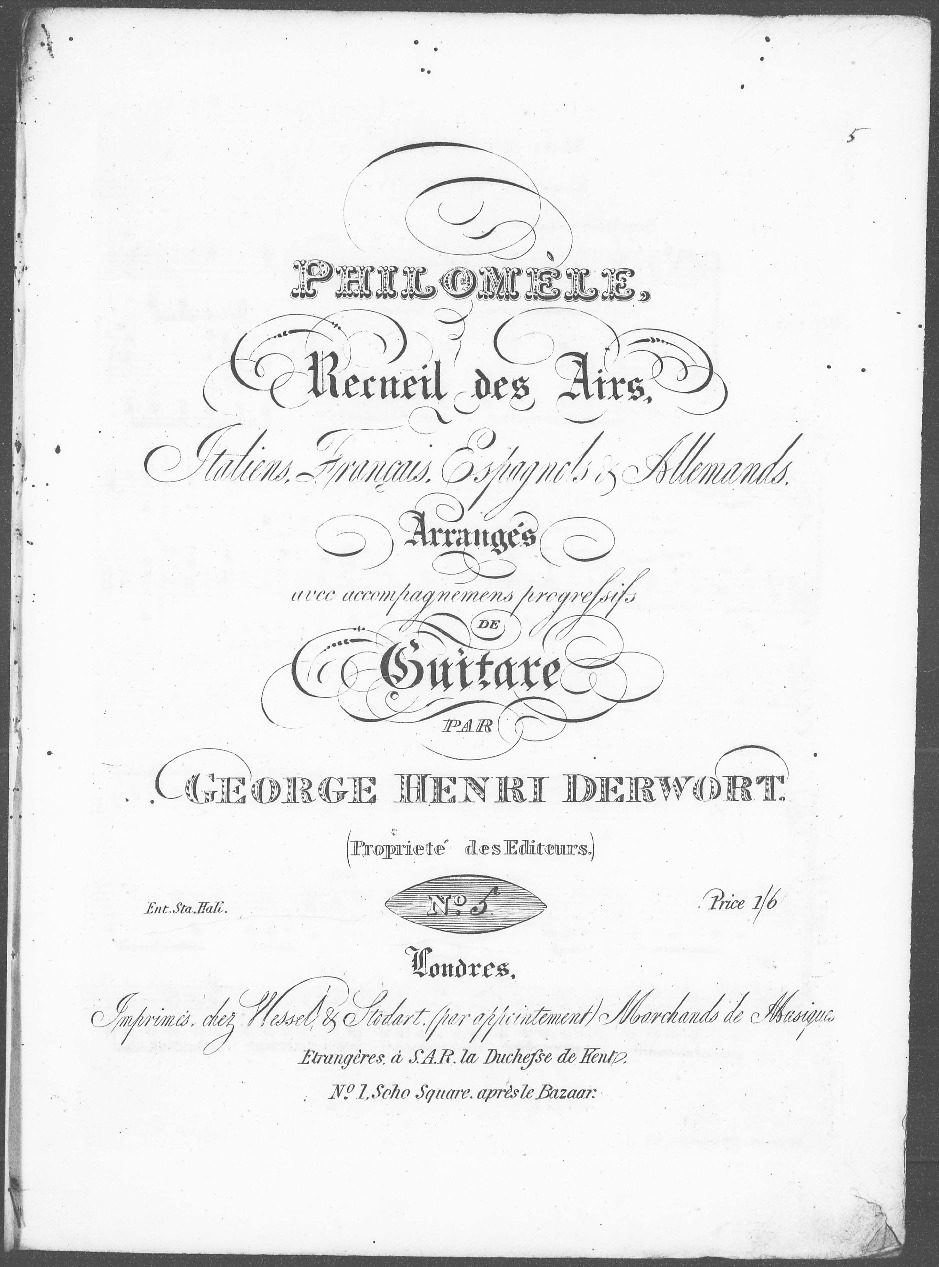 5
PHILOMÈLE,
Recueil des Airs,
Italiens, Français, Espagnols & Allemands,
Arrangés
avec accompagnemens progressifs
DE
Guitare
PAR
GEORGE HENRI DERWORT.
(Proprieté des Editeurs.)
Ent. Sta. Hall.
No. 5
Price 1/6
Londres,
Imprimés, chez Wessel, & Stodart, (par appointement) Marchands de Musique
Etrangères, à S.A.R. la Duchesse de Kent.
No. 1, Soho Square, après le Bazaar.